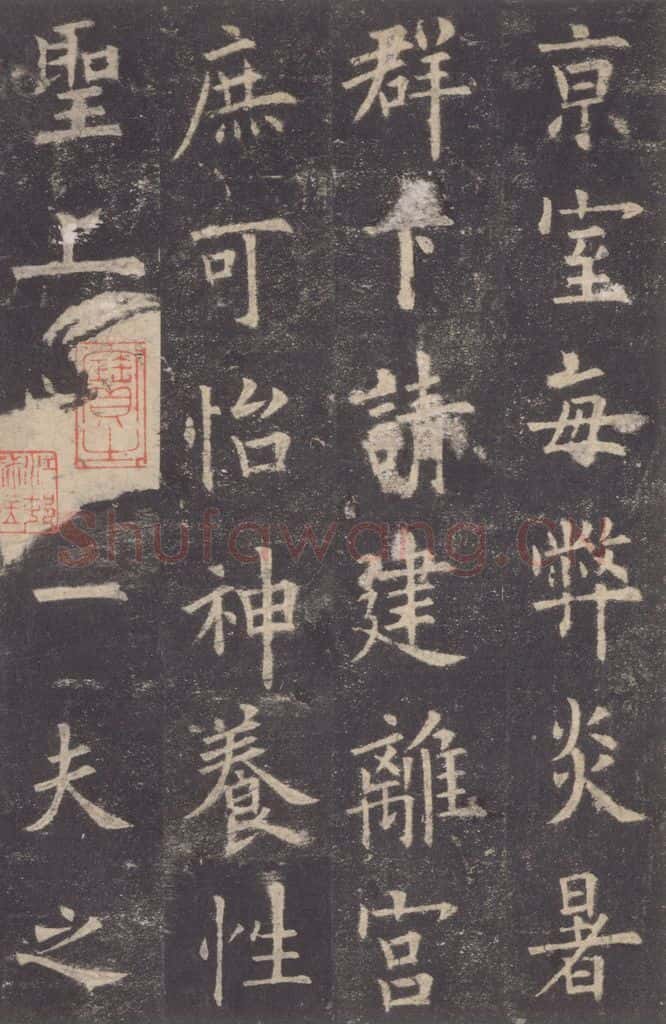 京室每弊炎暑
群下請建離宮
庶可怡神養性
聖上
一夫之
Shufawang.cn